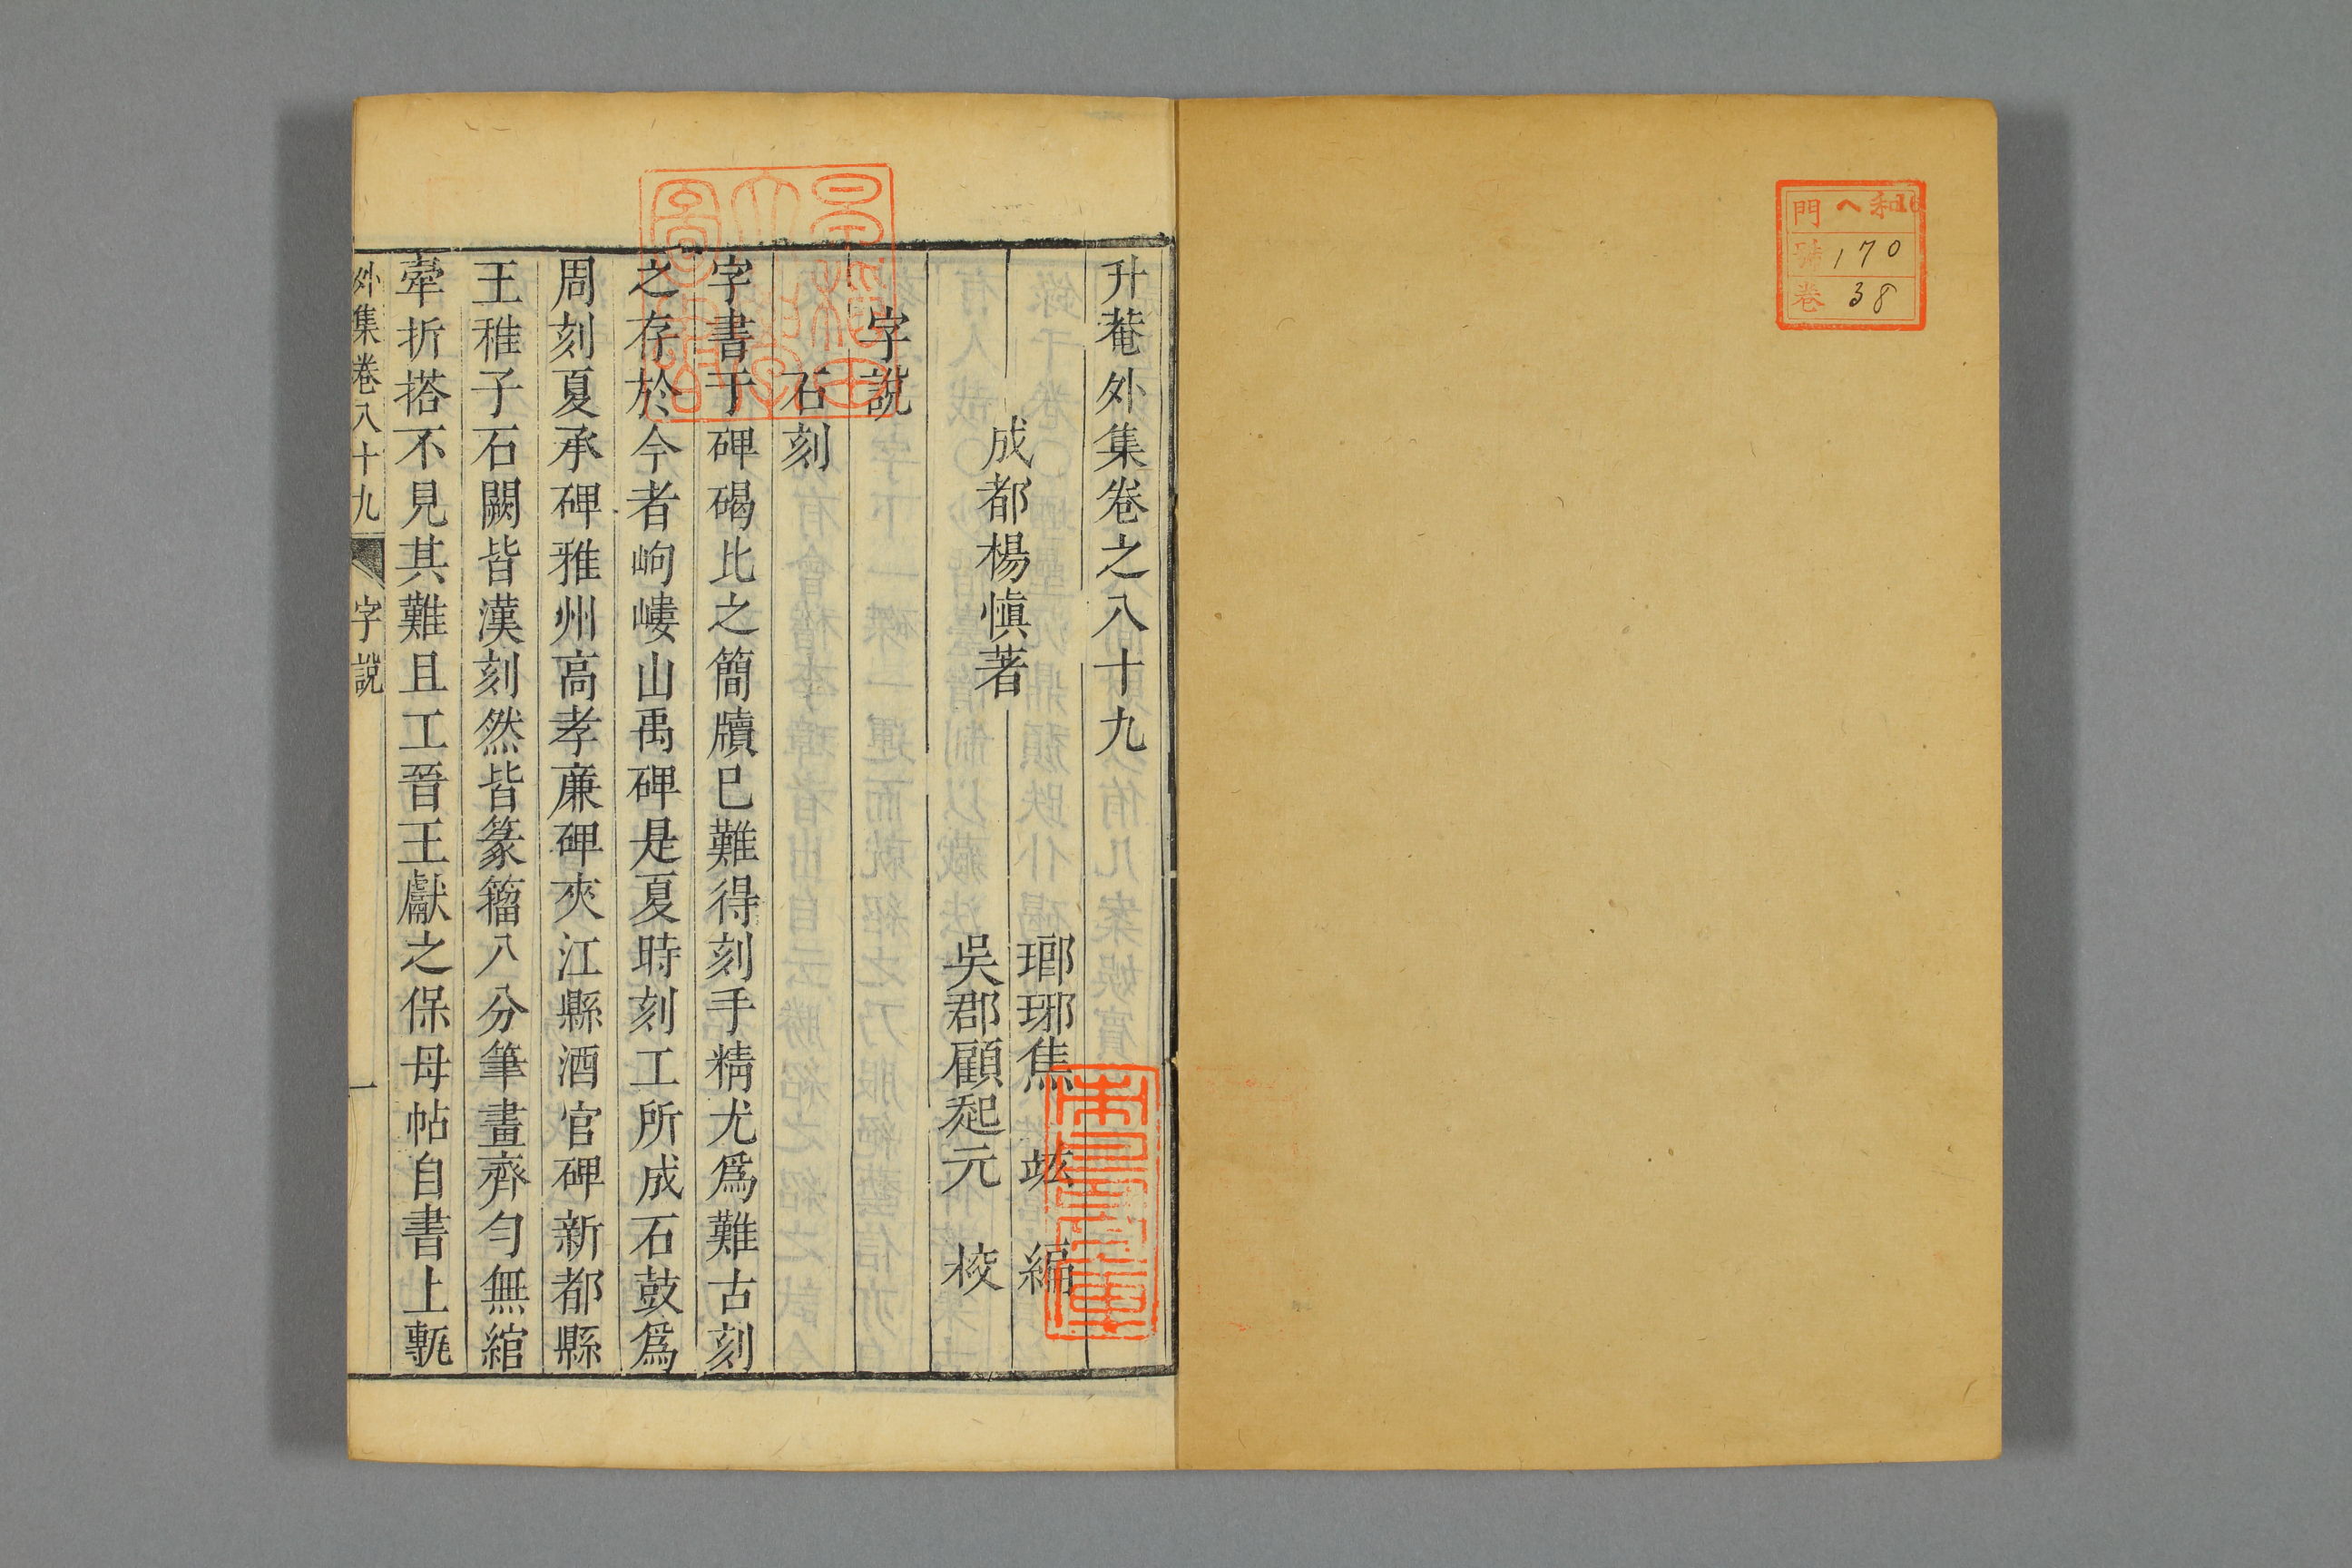 門 ヘ和16
號 170
卷 38
升菴外集卷之八十九
成都楊慎著
瑯琊焦 竑 編
吳郡顧起元 校
字說
石刻
字書于碑碣比之簡牘已難得刻手精尤爲難古刻
之存於今者岣嶁山禹碑是夏時刻工所成石鼓爲
周刻夏承碑雅州高孝廉碑夾江縣酒官碑新都縣
王稚子石闕皆漢刻然皆篆籀八分筆畫齊勻無綰
牽折搭不見其難且工晉王獻之保母帖自書上甎
外集卷八十九 字說 一